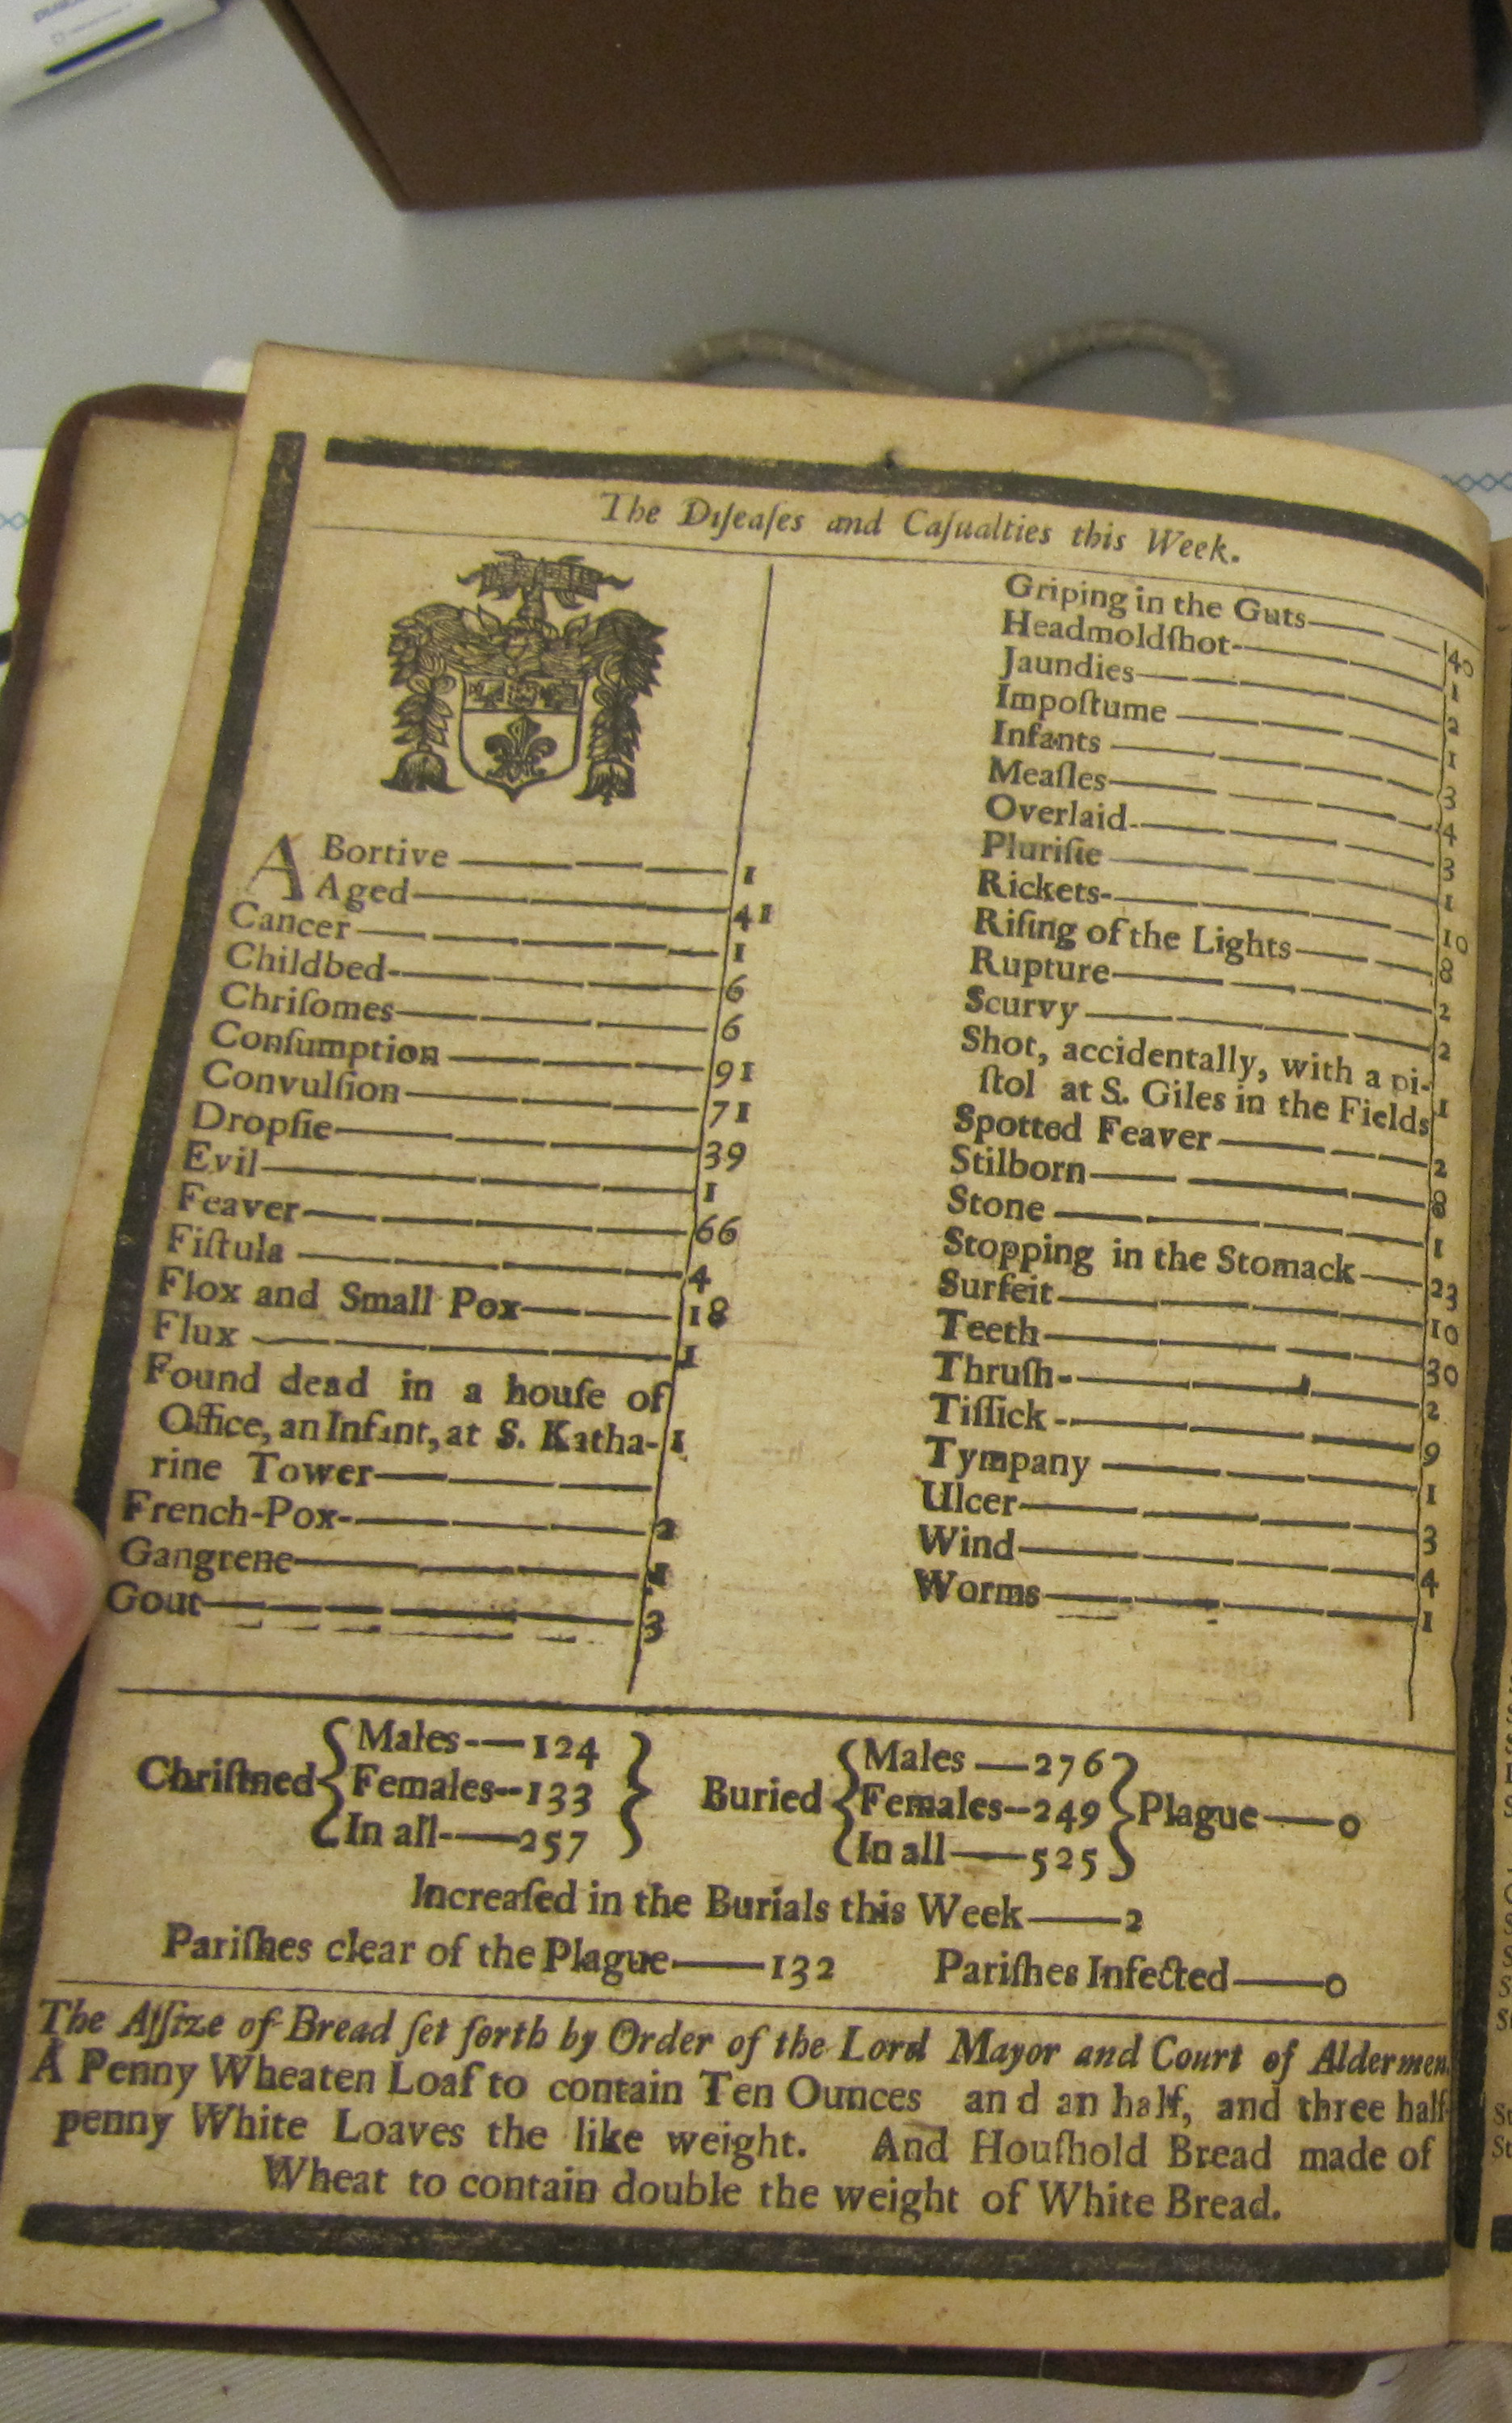 The Diſeaſes and Caſualties this Week.
ABortive — 1
Aged — 41
Cancer — 1
Childbed — 6
Chriſomes — 6
Conſumption — 91
Convulſion — 71
Dropſie — 39
Evil — 1
Feaver — 66
Fiſtula — 4
Flox and Small Pox — 18
Flux — 1
Found dead in a houſe of
Office, an Infant, at S. Katha- 1
rine Tower —
French-Pox — 2
Gangrene — 1
Gout — 3
Griping in the Guts — 40
Headmoldſhot — 1
Jaundies — 2
Impoſtume — 1
Infants — 3
Meaſles — 4
Overlaid — 3
Pluriſie — 1
Rickets — 10
Riſing of the Lights — 8
Rupture — 2
Scurvy — 2
Shot, accidentally, with a pi-
ſtol at S. Giles in the Fields 1
Spotted Feaver — 2
Stilborn — 8
Stone — 1
Stopping in the Stomack — 23
Surfeit — 10
Teeth — 30
Thruſh — 2
Tiſſick — 9
Tympany — 1
Ulcer — 3
Wind — 4
Worms — 1
Chriſtned { Males — 124
Females — 133
In all — 257 }
Buried { Males — 276
Females — 249
In all — 525 } Plague — 0
Increaſed in the Burials this Week — 2
Pariſhes clear of the Plague — 132 Pariſhes Infected — 0
The Aſſize of Bread ſet forth by Order of the Lord Mayor and Court of Aldermen.
A Penny Wheaten Loaf to contain Ten Ounces and an half, and three half-
penny White Loaves the like weight. And Houſhold Bread made of
Wheat to contain double the weight of White Bread.